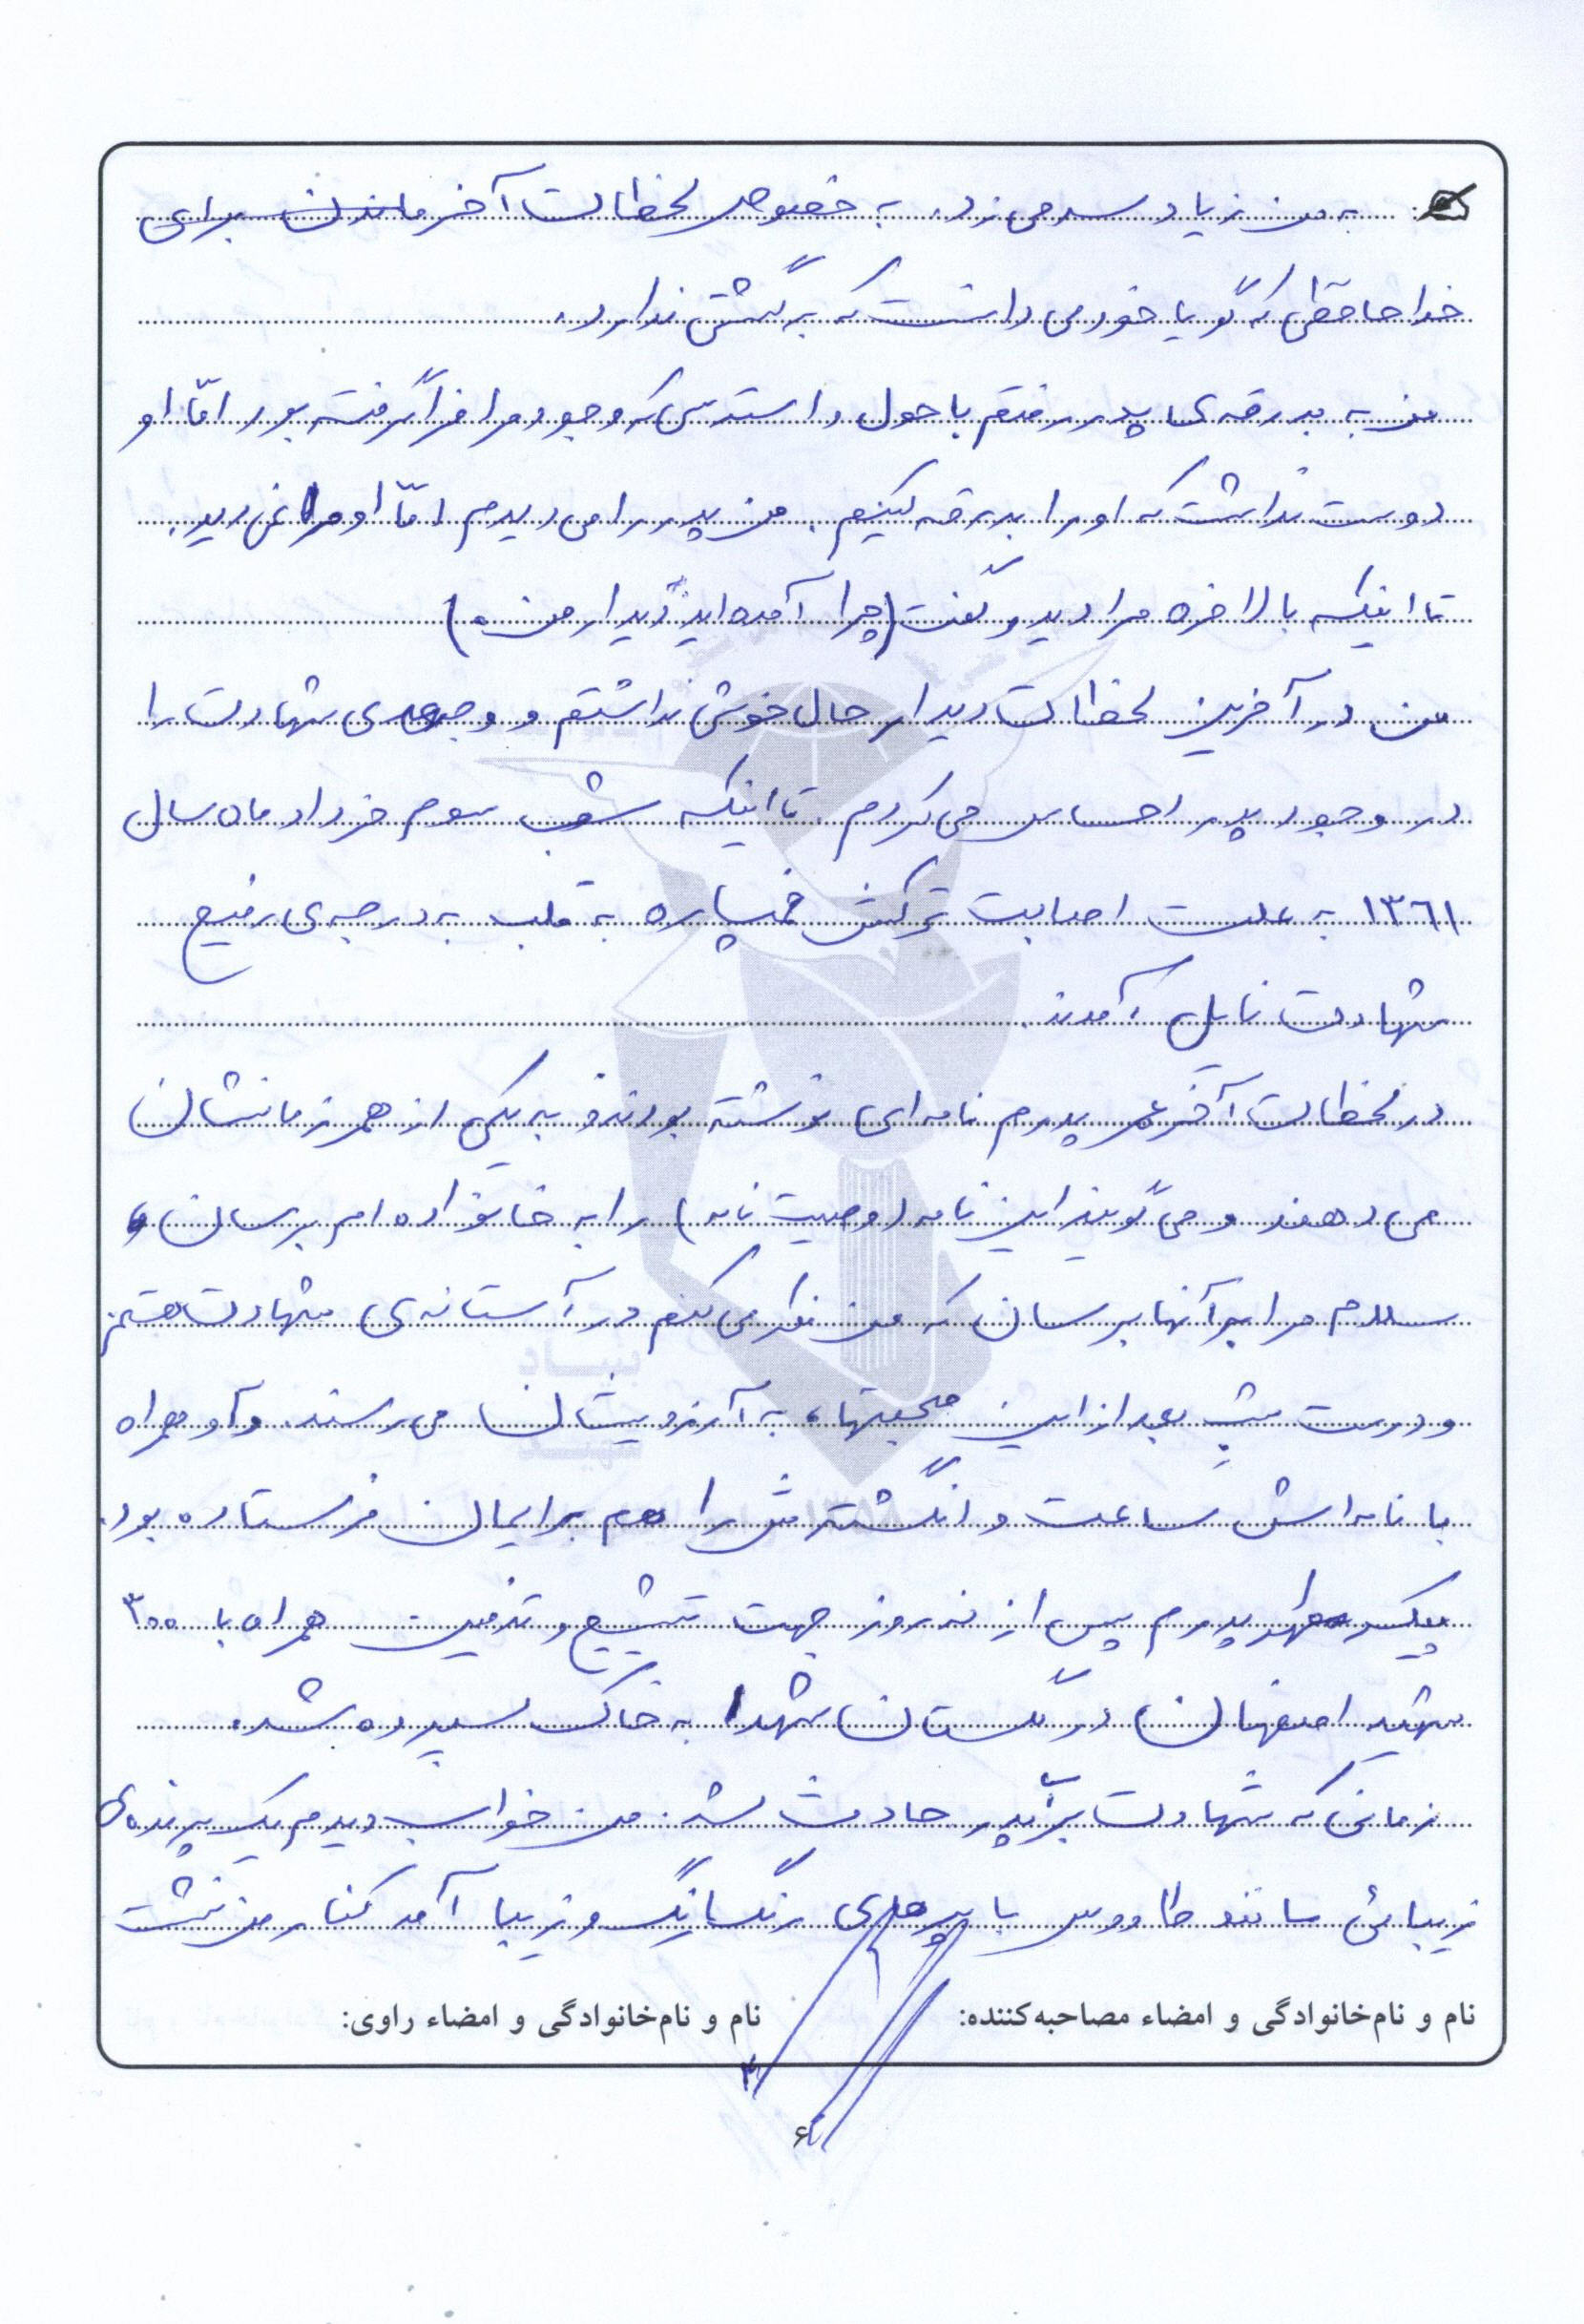 به من زیاد سر می زد. به خصوص لحظات آخر ماندن برای
خداحافظی که گویا خود می دانست که برگشتی ندارد.
من به بدرقه ی پدر رفتم با هول و استرسی که وجود مرا فرا گرفته بود امّا او
دوست نداشت که او را بدرقه کنیم. من پدر را می دیدم امّا او مرا نمی دید.
تا اینکه بالاخره مرا دید و گفت (چرا آمده اید دیدار من.)
من در آخرین لحظات دیدار حال خوشی نداشتم و وجهه ی شهادت را
در وجود پدر احساس می کردم. تا اینکه شب سوم خرداد ماه سال
۱۳۶۱ به علت اصابت ترکش خمپاره به قلب به درجه ی رفیع
شهادت نایل آمدند.
در لحظات آخر عمر پدرم نامه ای نوشته بودند و به یکی از همرزمانشان
می دهند و می گویند این نامه (وصیت نامه) را به خانواده ام برسان و
سلام مرا به آنها برسان که من فکر می کنم در آستانه ی شهادت هستم
و درست شب بعد از این صحبتها، به آرزویشان می رسند. و او همراه
با نامه اش ساعت و انگشترش را هم برایمان فرستاده بود.
پیکر مطهر پدرم پس از نه روز جهت تشییع و تدفین همراه با ۳۰۰
شهید اصفهان در گلستان شهدا به خاک سپرده شد.
زمانی که شهادت برای پدر حادث شد. من خواب دیدم یک پرنده ی
زیبائی مانند طاووس با پرهای رنگارنگ و زیبا آمد کنار من نشست
نام و نام‌خانوادگی و امضاء مصاحبه‌کننده: نام و نام‌خانوادگی و امضاء راوی:
۶
بنیاد
شهید